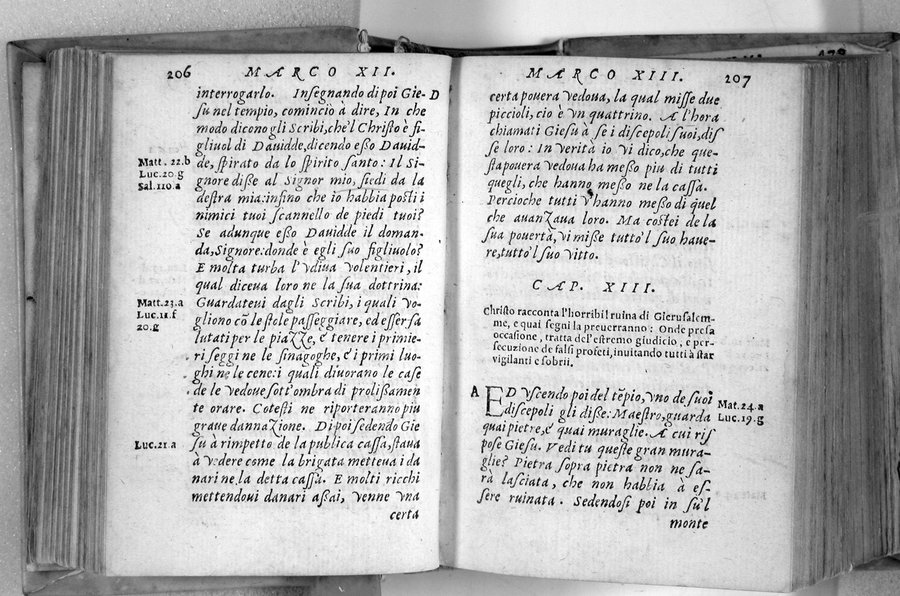 206
MARCO XII.
interrogarlo. Insegnando di poi Gie- D
su nel tempio, cominciò à dire, In che
modo dicono gli Scribi, che'l Christo è fi-
gliuol di Dauidde, dicendo eßo Dauid-
de, spirato da lo spirito santo: Il Si-
gnore diße al Signor mio, siedi da la
destra mia: infino che io habbia posti i
nimici tuoi scannello de piedi tuoi?
Se adunque eßo Dauidde il doman-
da, Signore: donde è egli suo figliuolo?
E molta turba l'vdiua volentieri, il
qual diceua loro ne la sua dottrina:
Guardateui dagli Scribi, i quali vo-
gliono cõ le stole passeggiare, ed esser sa
lutati per le piazze, é tenere i primie-
ri seggi ne le sinagoghe, é i primi luo-
ghi ne le cene: i quali diuorano le case
de le vedoue sott'ombra di prolißamen
te orare. Cotesti ne riporteranno piu
graue dannazione. Di poi sedendo Gie
su à rimpetto de la publica cassa, staua
à vedere come la brigata metteua i da
nari ne la detta cassa. E molti ricchi
mettendoui danari aßai, venne vna
certa
Matt. 22.b
Luc.20.g
Sal.110.a
Matt.23.a
Luc.11.f
20.g
Luc.21.a
MARCO XIII.
207
certa pouera vedoua, la qual misse due
piccioli, ciò è vn quattrino. A l'hora
chiamati Giesu à se i discepoli suoi, dis
se loro: In verità io vi dico, che que-
sta pouera vedoua ha meßo piu di tutti
quegli, che hanno meßo ne la cassa.
Percioche tutti v'hanno meßo di quel
che auanzaua loro. Ma costei de la
sua pouertà, vi miße tutto'l suo haue-
re, tutto'l suo vitto.
CAP. XIII.
Christo racconta l'horribil ruina di Gierusalem-
me, e quai segni la preuerranno: Onde presa
occasione, tratta de l'estremo giudicio, e per-
secuzione de falsi profeti, inuitando tutti à star
vigilanti e sobrii.
A ED vscendo poi del tẽpio, vno de suoi
discepoli gli diße: Maestro, guarda
quai pietre, é quai muraglie. A cui ris
pose Giesu. Vedi tu queste gran mura-
glie? Pietra sopra pietra non ne sa-
rà lasciata, che non habbia à es-
sere ruinata. Sedendosi poi in su'l
monte
Mat.24.a
Luc.19.g